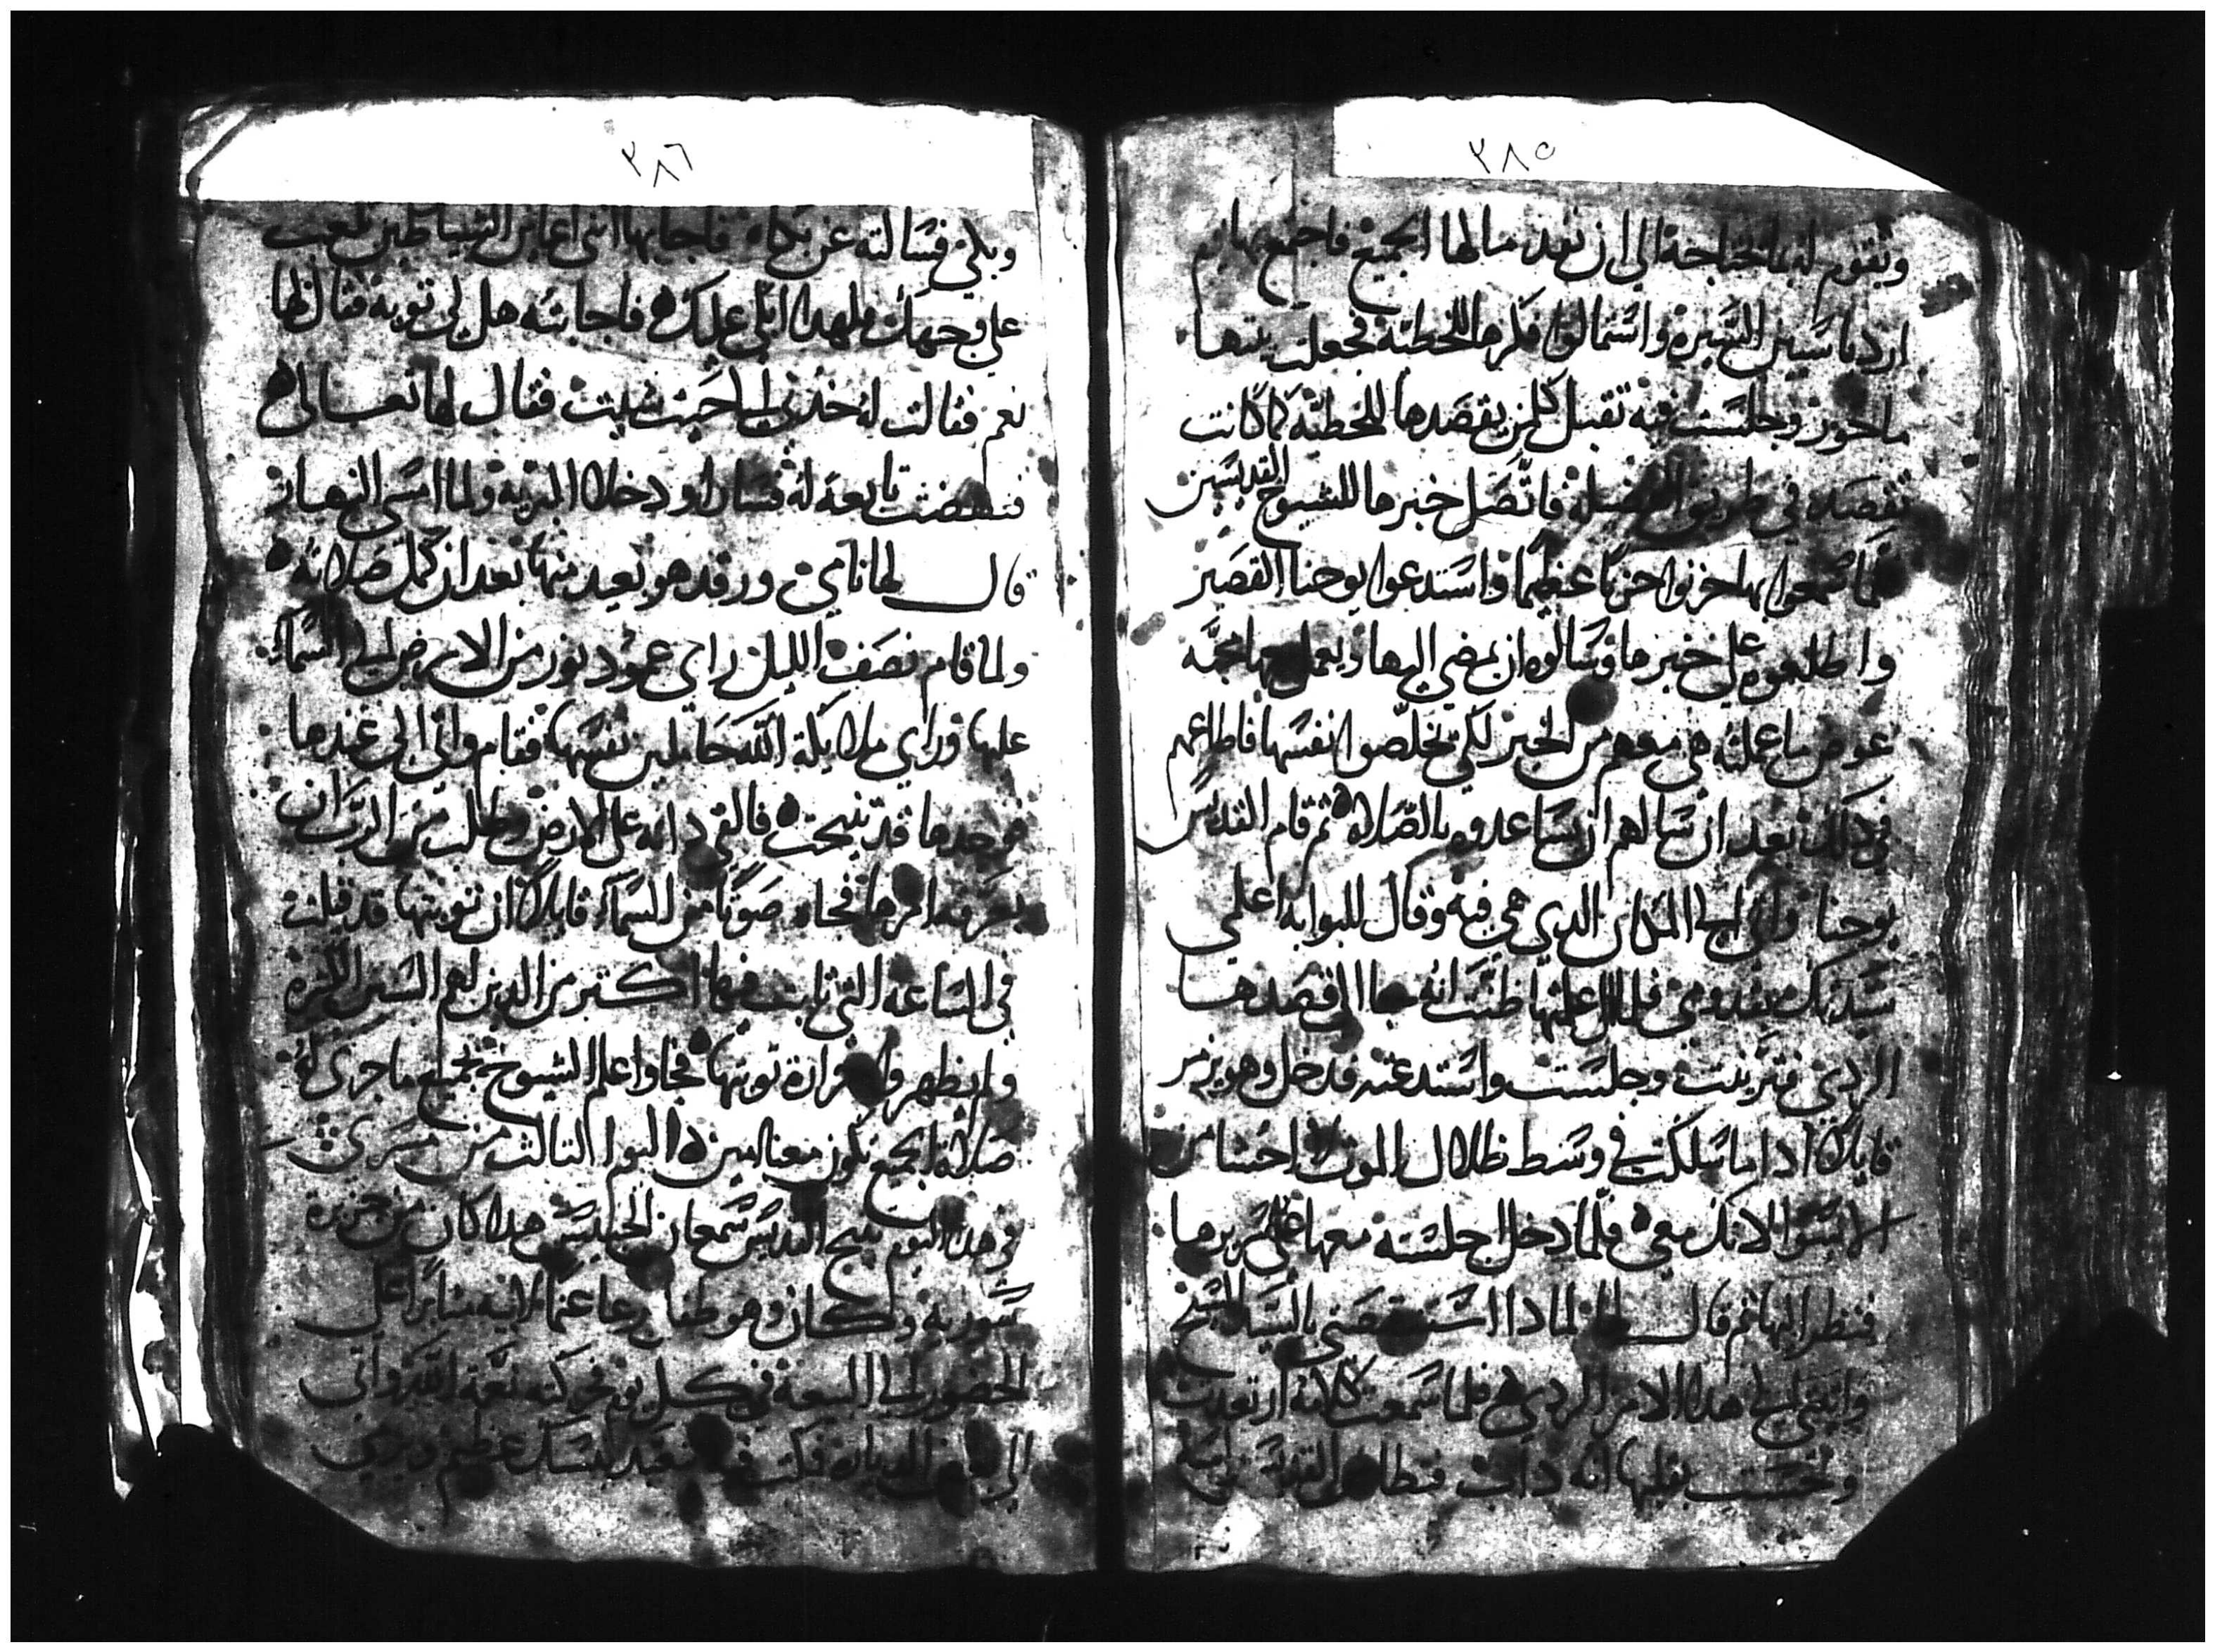 ٣٨٥
وتقوم له بما تحتاجه الي ان نفد مالها الجميع فاجتمع بها قوم
ارديا سيين السيره واستمالوا فكرها للخطيه فجعلت بيتها
ماخور وجلست فيه تقبل كلمن يقصدها للخطيه كما كانت
تقصد في طريق الفضيله فاتصل خبرها للشيوخ القديسين
فلما سمعوا بها حزنوا حزنا عظيما واستدعوا يوحنا القصير
واطلعوه علي خبرها وسالوه ان يمضي اليها ويعمل معها محبه
عوض ما عملته هي معهم من الخير لكي يخلصوا نفسها فاطاعهم
في ذلك بعد ان سالهم ان يساعدوه بالصلاه ثم قام القديس
يوحنا واتي الي المكان الدي هي فيه وقال للبوابه اعلمي
سيدتك بقدومي فلما عليها ظنت انه جا الي قصدها
الردي فتزينت وجلست واستدعته فدخل وهو يزمر
قايلا ادا ما سلكت في وسط ظلال الموت لا اخشا من
الاسوا لانك معي فلما دخل اجلسته معها علي سريرها
فنظر اليها ثم قال لها لمادا استنقصتي بالسيد المسيح
واتيتي الي هدا الامر الردي فلما سمعت كلامه ارتعدت
وحست بقلبها انه داب فنطا القديس راسه
٣٨٦
وبكي فسالته عن بكاه فاجابها انني اعاين الشياطين تلعب
علي وجهك ولهدا ابكي عليك فاجابته هل لي توبه فقال لها
نعم فقالت له خدني الي حيث شيت فقال لها تعالي
فنهضت تابعة له فسارا ودخلا البريه ولما امسي النهار
قال لها نامي ورقد هو بعيد منها بعد ان كمل صلاته
ولما قام نصف الليل راي عمود نور من الارض الي السماء
عليها وراي ملايكة الله حاملين نفسها فقام واتي الي عندها
فوجدها قد تنيحت فالقي داته علي الارض وطلب من الرب ان
يعرفه امرها فجاه صوتا من السماء قايلا ان توبتها قد قبلت
في الساعه التي تابت فيها اكتر من الدين لهم السنين الكثره
ولم يظهروا حرارة توبتها فجا واعلم الشيوخ بجميع ما جري له
صلاة الجميع تكون معنا امين اليوم التالت من مسري
في هدا اليوم تنيح القديس سمعان الحبيس هدا كان من جزيره
سوريه وكان وهو طفل يرعا غنم لابيه مثابرا علي
الحضور الي البيعه في كل يوم فحركته نعمة الله واتي
الي الديارات فمكت فيه بعبد بنسك عظيم